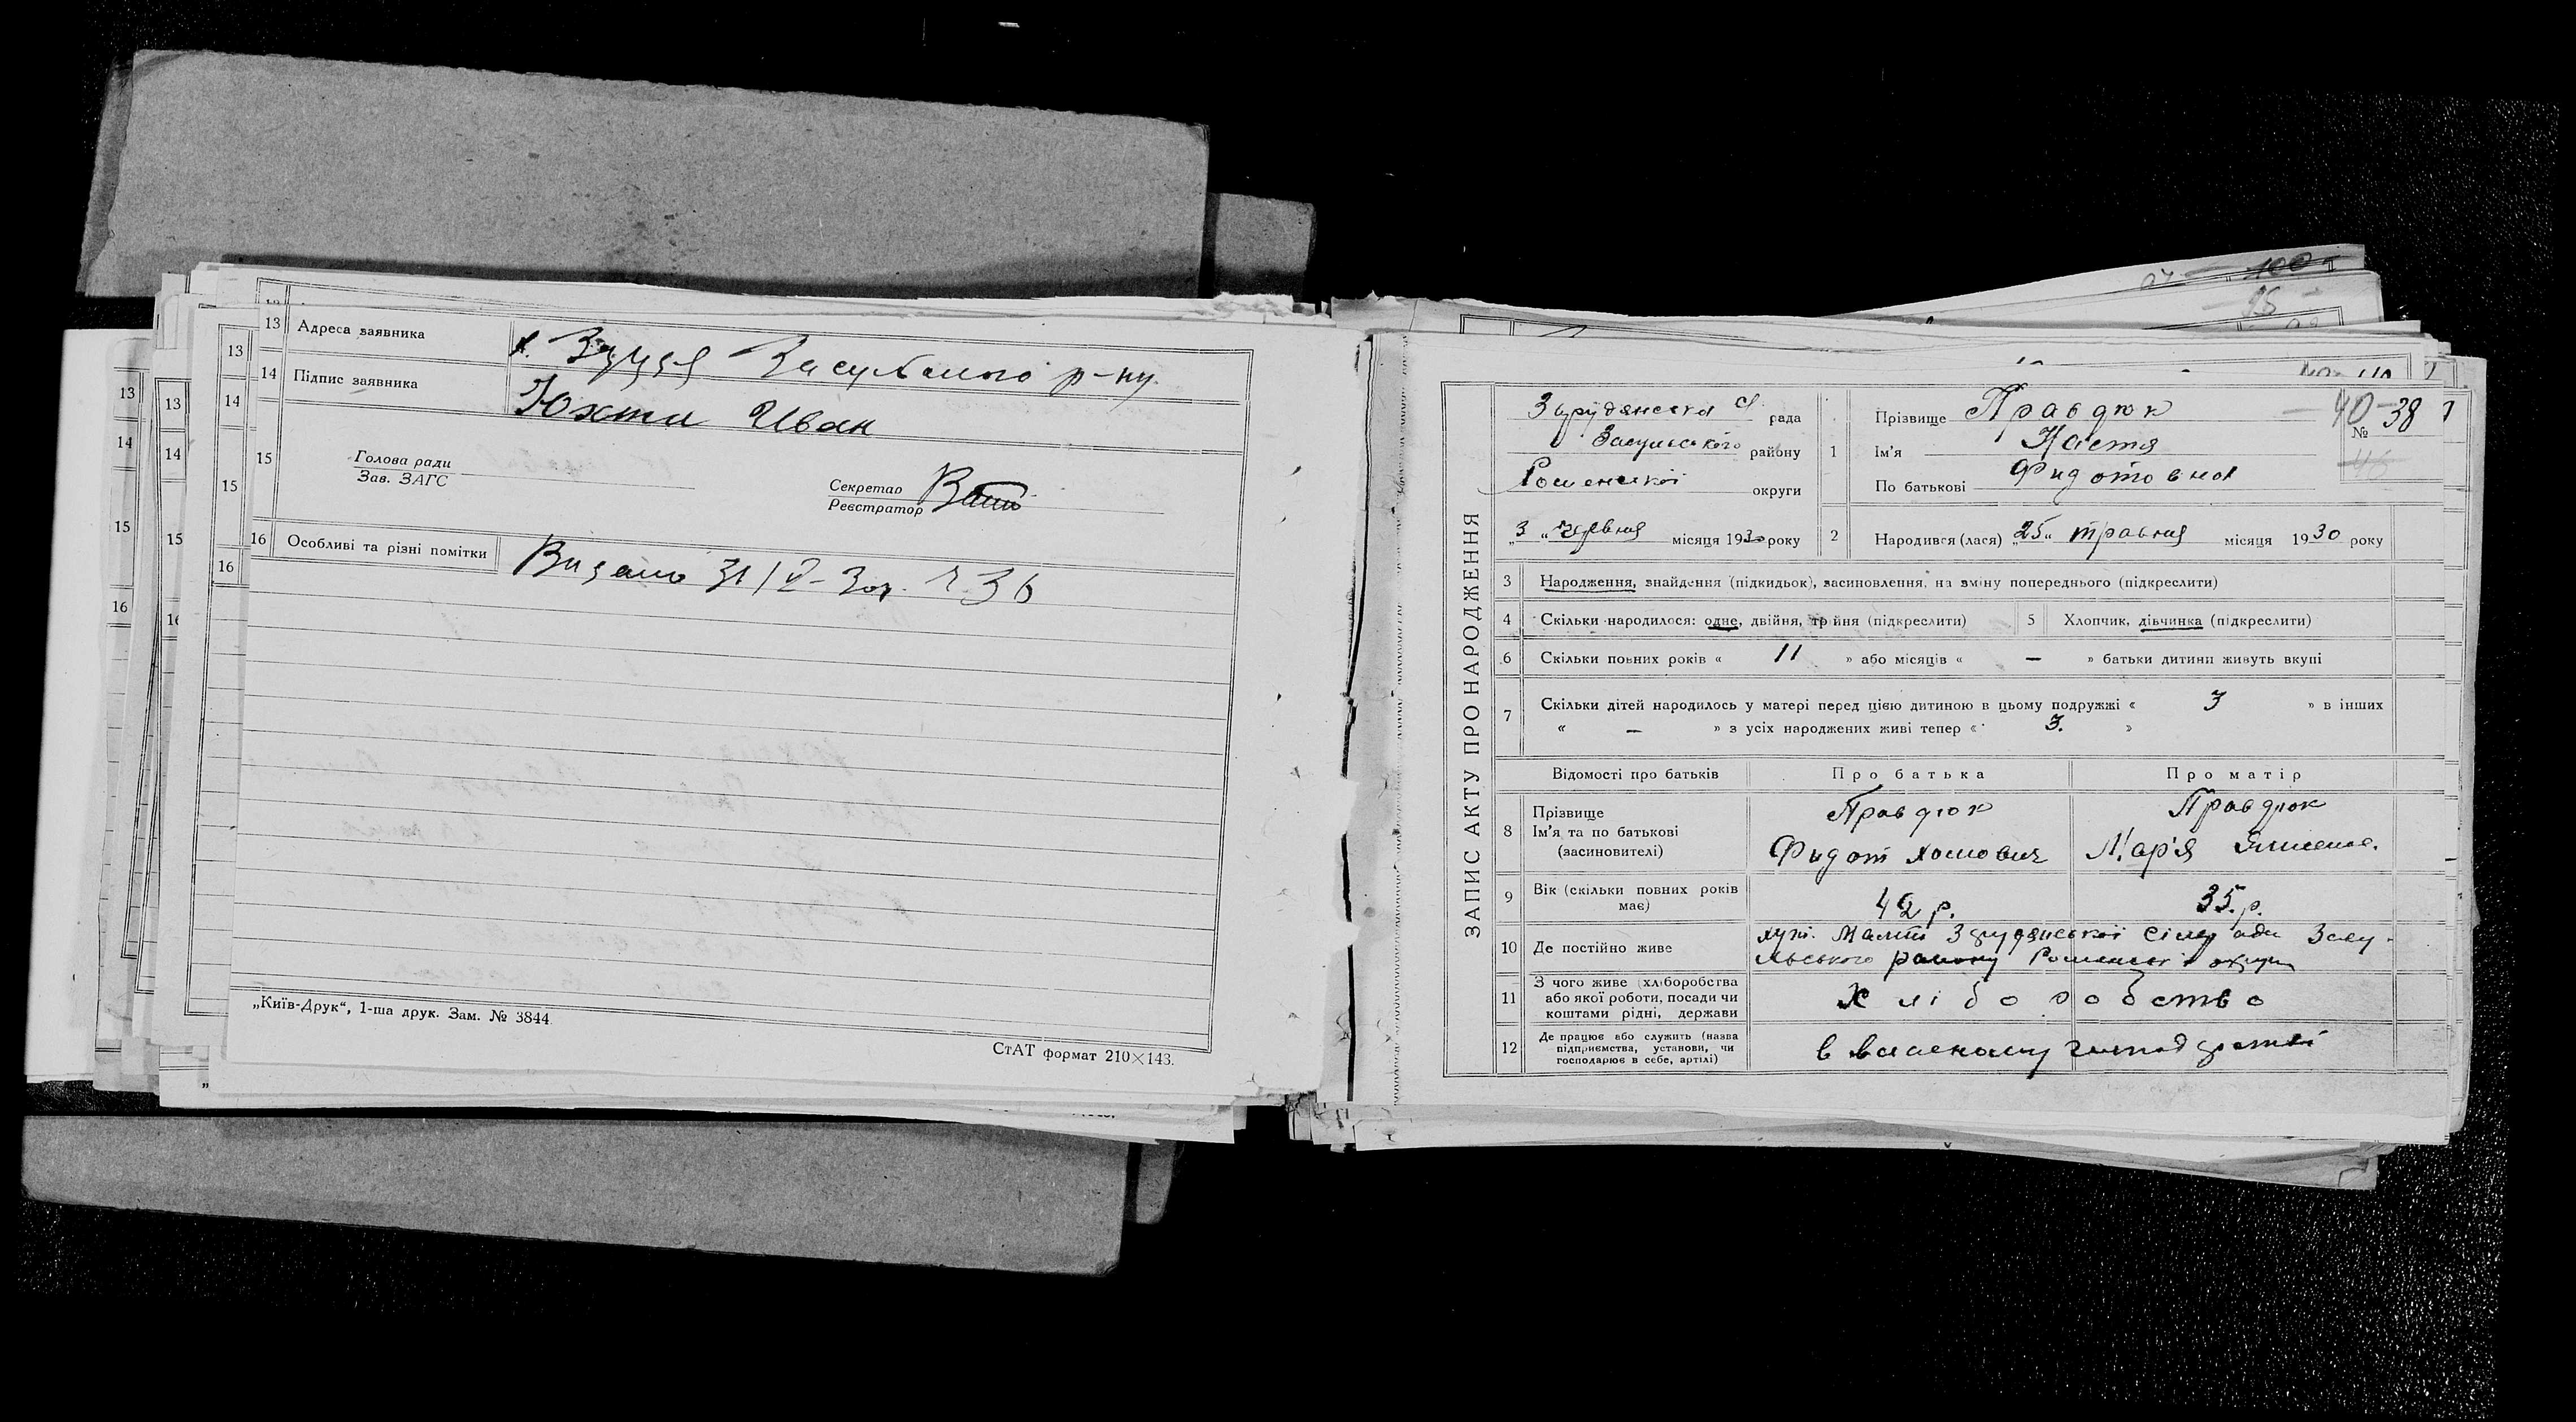 13 Адреса заявника
14 Підпис заявника
Юхти Иван
15
Голова ради
Зав. ЗАГС
Секретар
Реєстратор
16 Особливі та різні помітки
Видано 31/V-30р. № 36
„Київ-Друк“, 1-ша друк. Зам. № 3844
СтАТ формат 210×143.
13
14
15
16
13
14
15
13
14
15
16
ЗАПИС АКТУ ПРО НАРОДЖЕННЯ
Зарудянська с рада
Засульського району
Роменської округи
„3“ червня місяця 1930 року
1 Прізвище Правдюк
Ім'я Настя
По батькові Фидотовна
40 38
№
2 Народився (лася) „25“ травня місяця 1930 року
3 Народження, знайдення (підкидьок), засиновлення, на зміну попереднього (підкреслити)
4 Скільки народилося: одне, двійня, трійня (підкреслити) 5 Хлопчик, дівчинка (підкреслити)
6 Скільки повних років « 11 » або місяців « — » батьки дитини живуть вкупі
7 Скільки дітей народилось у матері перед цією дитиною в цьому подружжі « 3 » в інших
« — » з усіх народжених живі тепер « 3. »
Відомості про батьків Про батька Про матір
8 Прізвище Правдюк Правдюк
Ім'я та по батькові
(засиновителі) Фидот Хомович Мар'я
9 Вік (скільки повних років має) 42 р. 35.р.
10 Де постійно живе хут. Зарудянської сільради Засу-
льського району Роменської округи
11 З чого живе (хліборобства
або якої роботи, посади чи
коштами рідні, держави
Хліборобство
12 Де працює або служить (назва
підприємства, установи, чи
господарює в себе, артілі)
в власному господарстві